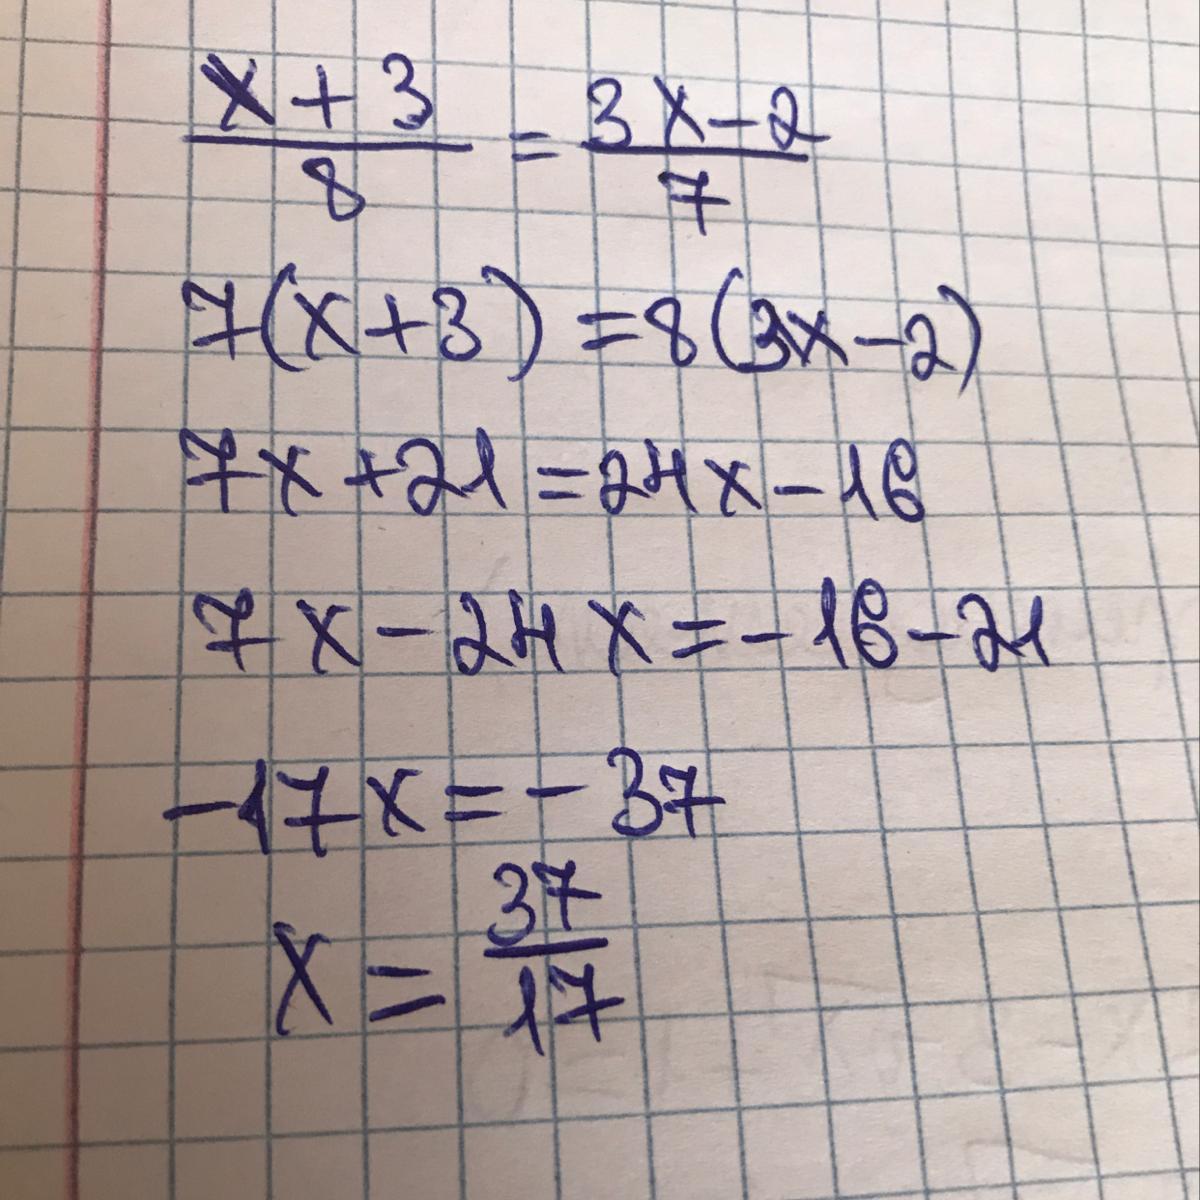 x + 3 / 8 = 3x - 2 / 7
7(x+3) = 8(3x-2)
7x + 21 = 24x - 16
7x - 24x = -16 - 21
-17x = -37
x = 37/17